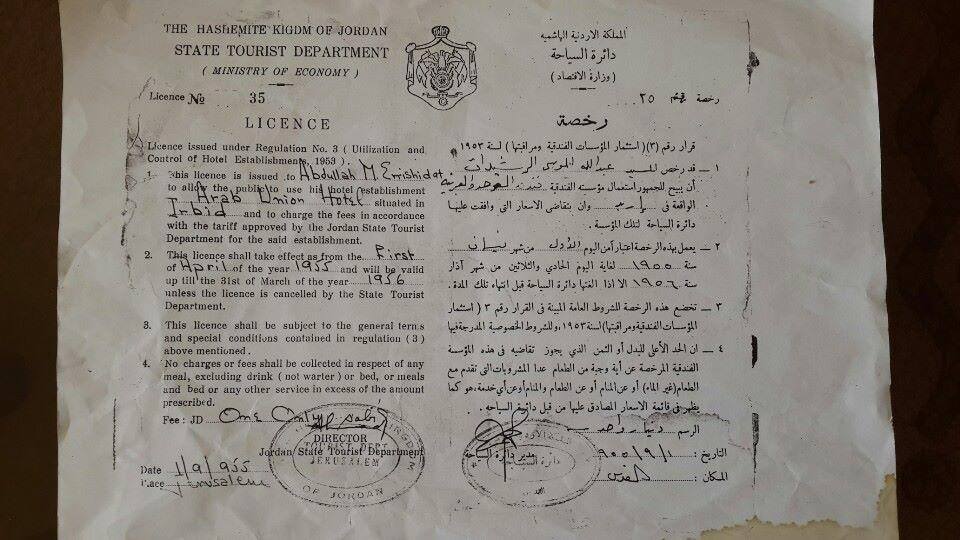 THE HASHEMITE KIGDM OF JORDAN
STATE TOURIST DEPARTMENT
( MINISTRY OF ECONOMY )
Licence No 35
LICENCE
Licence issued under Regulation No. 3 ( Utilization and
Control of Hotel Establishments, 1953 ) .
1. This licence is issued to Abdullah M Errishidat
to allow the public to use his hotel establishment
Arab Union Hotel situated in
Irbid and to charge the fees in accordance
with the tariff approved by the Jordan State Tourist
Department for the said establishment.
2. This licence shall take effect as from the First
of April of the year 1955 and will be valid
up till the 31st of March of the year 1956
unless the licence is cancelled by the State Tourist
Department.
3. This licence shall be subject to the general terms
and special conditions contained in regulation (3)
above mentioned.
4. No charges or fees shall be collected in respect of any
meal, excluding drink ( not warter ) or bed, or meals
and bed or any other service in excess of the amount
prescribed.
Fee : JD One Only
DIRECTOR
Jordan State Tourist Department
TOURIST DEPT
JERUSALEM
OF JORDAN
Date 1/9/955
Place Jerusalem
المملكة الاردنية الهاشمية
دائرة السياحة
( وزارة الاقتصاد )
رخصة رقم ٣٥
رخصة
قرار رقم (٣) ( استثمار المؤسسات الفندقية ومراقبتها ) لسنة ١٩٥٣
١ ــ قد رخص للسيد عبدالله الموسى الرشيدات
أن يبيح للجمهور استعمال مؤسسته الفندقية فندق الوحدة العربية
الواقعة في اربد وان يتقاضى الاسعار التي وافقت عليها
دائرة السياحة لتلك المؤسسة .
٢ ــ يعمل بهذه الرخصة اعتبارا من اليوم الأول من شهر نيسان
سنة ١٩٥٥ لغاية اليوم الحادي والثلاثين من شهر آذار
سنة ١٩٥٦ الا اذا الغتها دائرة السياحة قبل انتهاء تلك المدة .
٣ ــ تخضع هذه الرخصة للشروط العامة المبينة في القرار رقم ٣ ( استثمار
المؤسسات الفندقية ومراقبتها ) لسنة ١٩٥٣، وللشروط الخصوصية المدرجة فيها
٤ ــ ان الحد الأعلى للبدل أو الثمن الذي يجوز تقاضيه في هذه المؤسسة
الفندقية المرخصة عن أية وجبة من الطعام عدا المشروبات التي تقدم مع
الطعام (غير الماء) أو عن المنام أو عن الطعام والمنام أو عن أي خدمة، هو كما
يظهر في قائمة الاسعار المصادق عليها من قبل دائرة السياحه .
الرسم دينار واحد
التاريخ : ٩٥٥/٩/١ مدير دائرة السياحة
المكان : القدس
دائرة السياحة
القدس